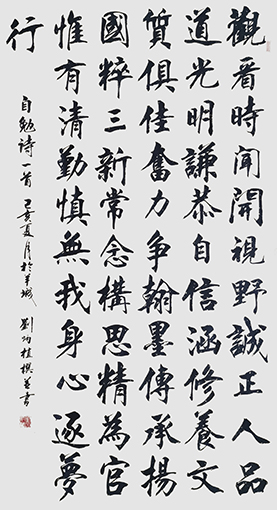 觀看時聞開視野誠正人品
道光明謙恭自信涵修養文
質俱佳奮力爭翰墨傳承揚
國粹三新常念構思精為官
惟有清勤慎無我身心逐夢
行
自勉詩一首 己亥夏月於羊城 劉功桂撰並書